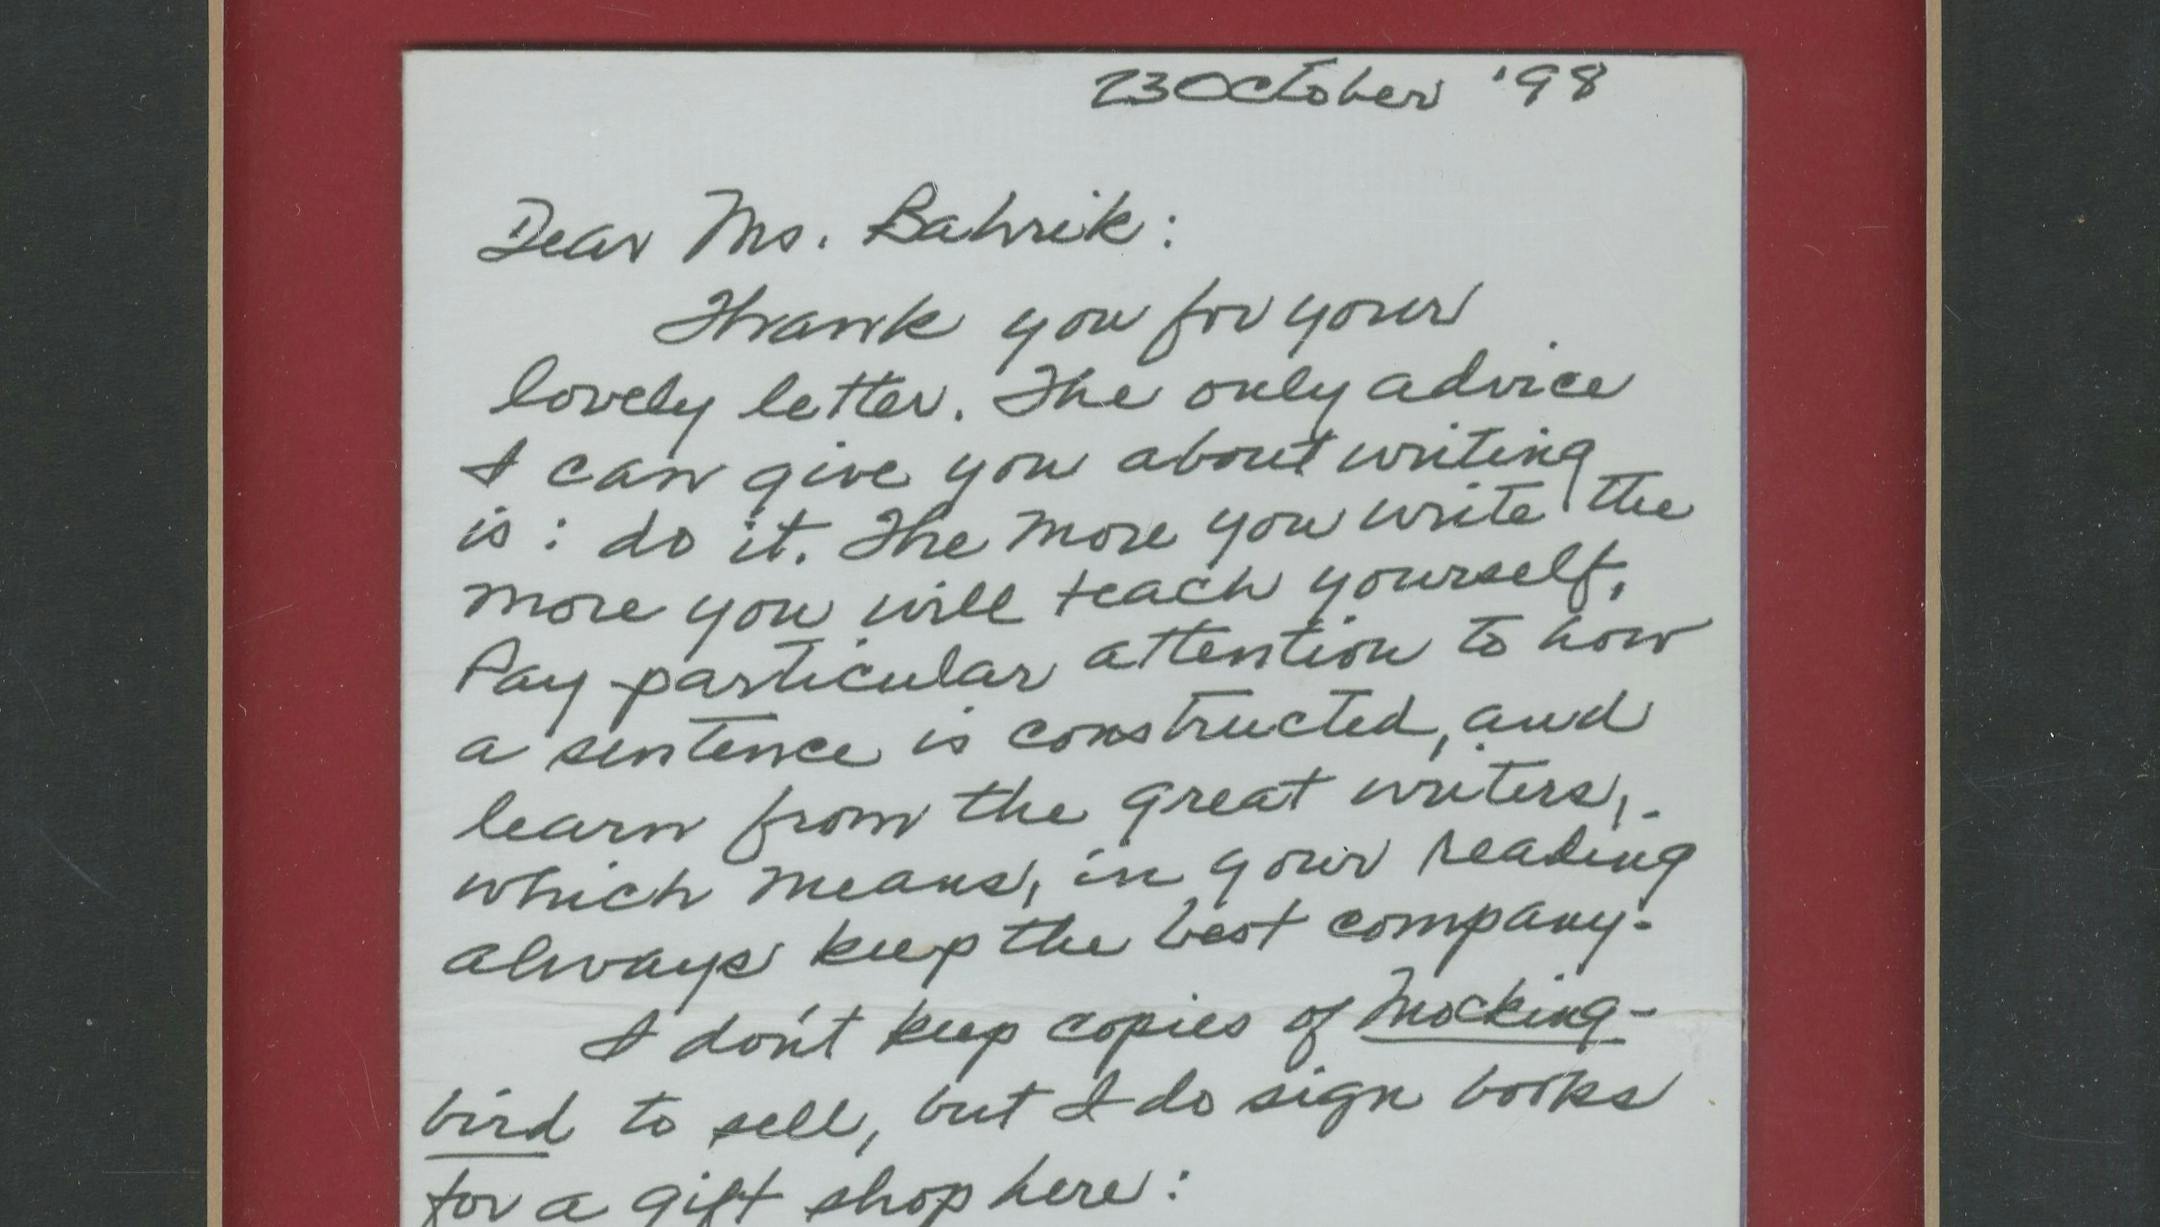 23 October '98
Dear Ms. Bahrik:
Thank you for your
lovely letter. The only advice
I can give you about writing
is: do it. The more you write the
more you will teach yourself.
Pay particular attention to how
a sentence is constructed, and
learn from the great writers,
which means, in your reading
always keep the best company.
I don't keep copies of Mocking-
bird to sell, but I do sign books
for a gift shop here: